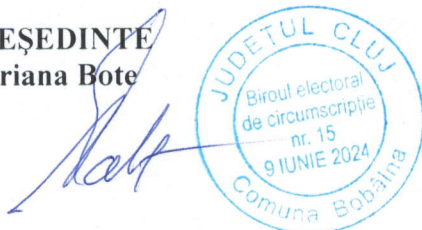 EȘEDINTE
riana Bote
JUDEȚUL CLUJ
Biroul electoral
de circumscripție
nr. 15
9 IUNIE 2024
Comuna Bobâlna